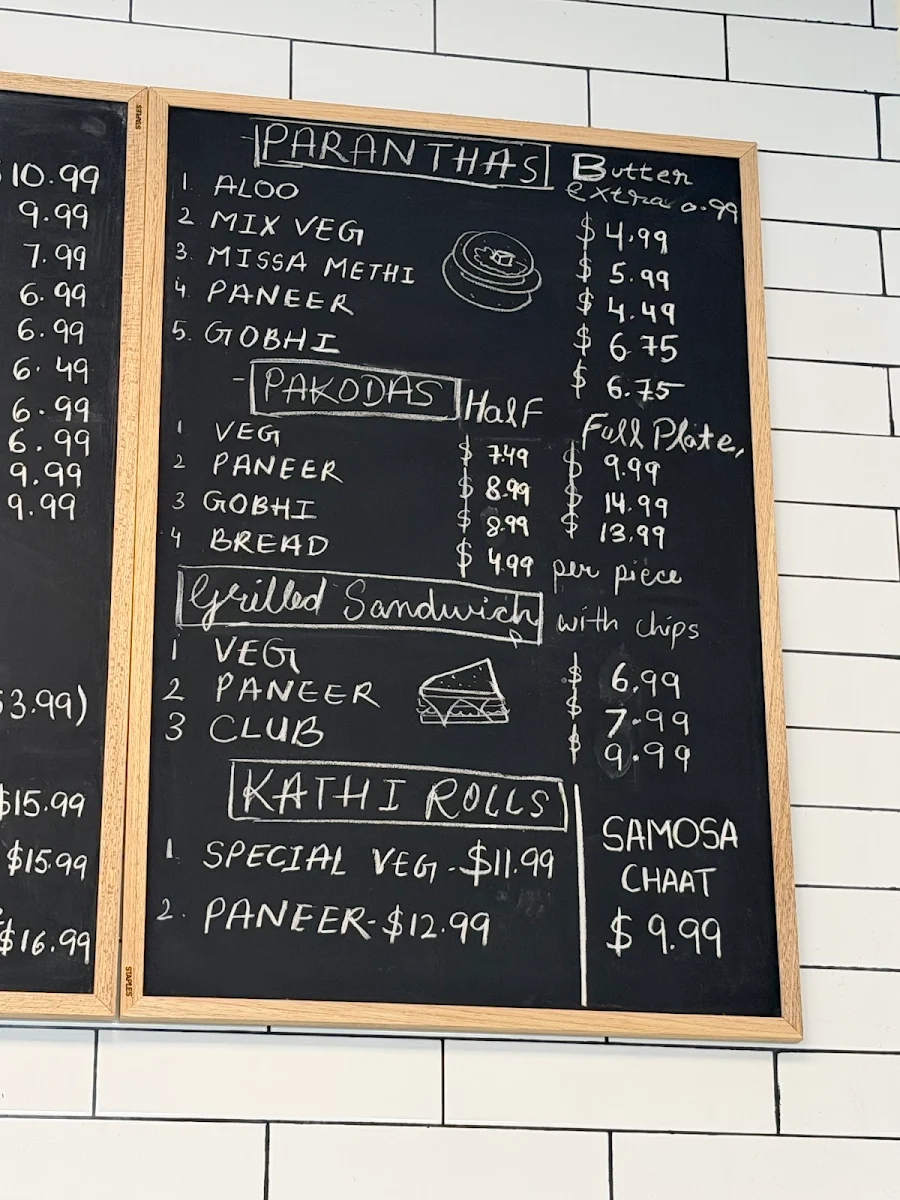 10.99
9.99
7.99
6.99
6.99
6.49
6.99
6.99
9.99
9.99
$3.99)
$15.99
$15.99
$16.99
STAPLES
STAPLES
PARANTHAS Butter
extra 0.99
1. ALOO $4.99
2 MIX VEG $5.99
3. MISSA METHI $4.49
4. PANEER $6.75
5. GOBHI $6.75
- PAKODAS Half Full Plate,
1 VEG $7.49 $9.99
2 PANEER $8.99 $14.99
3 GOBHI $8.99 $13.99
4 BREAD $4.99 per piece
Grilled Sandwich with chips
1 VEG $6.99
2 PANEER $7.99
3 CLUB $9.99
KATHI ROLLS
1. SPECIAL VEG - $11.99
2. PANEER - $12.99
SAMOSA
CHAAT
$9.99